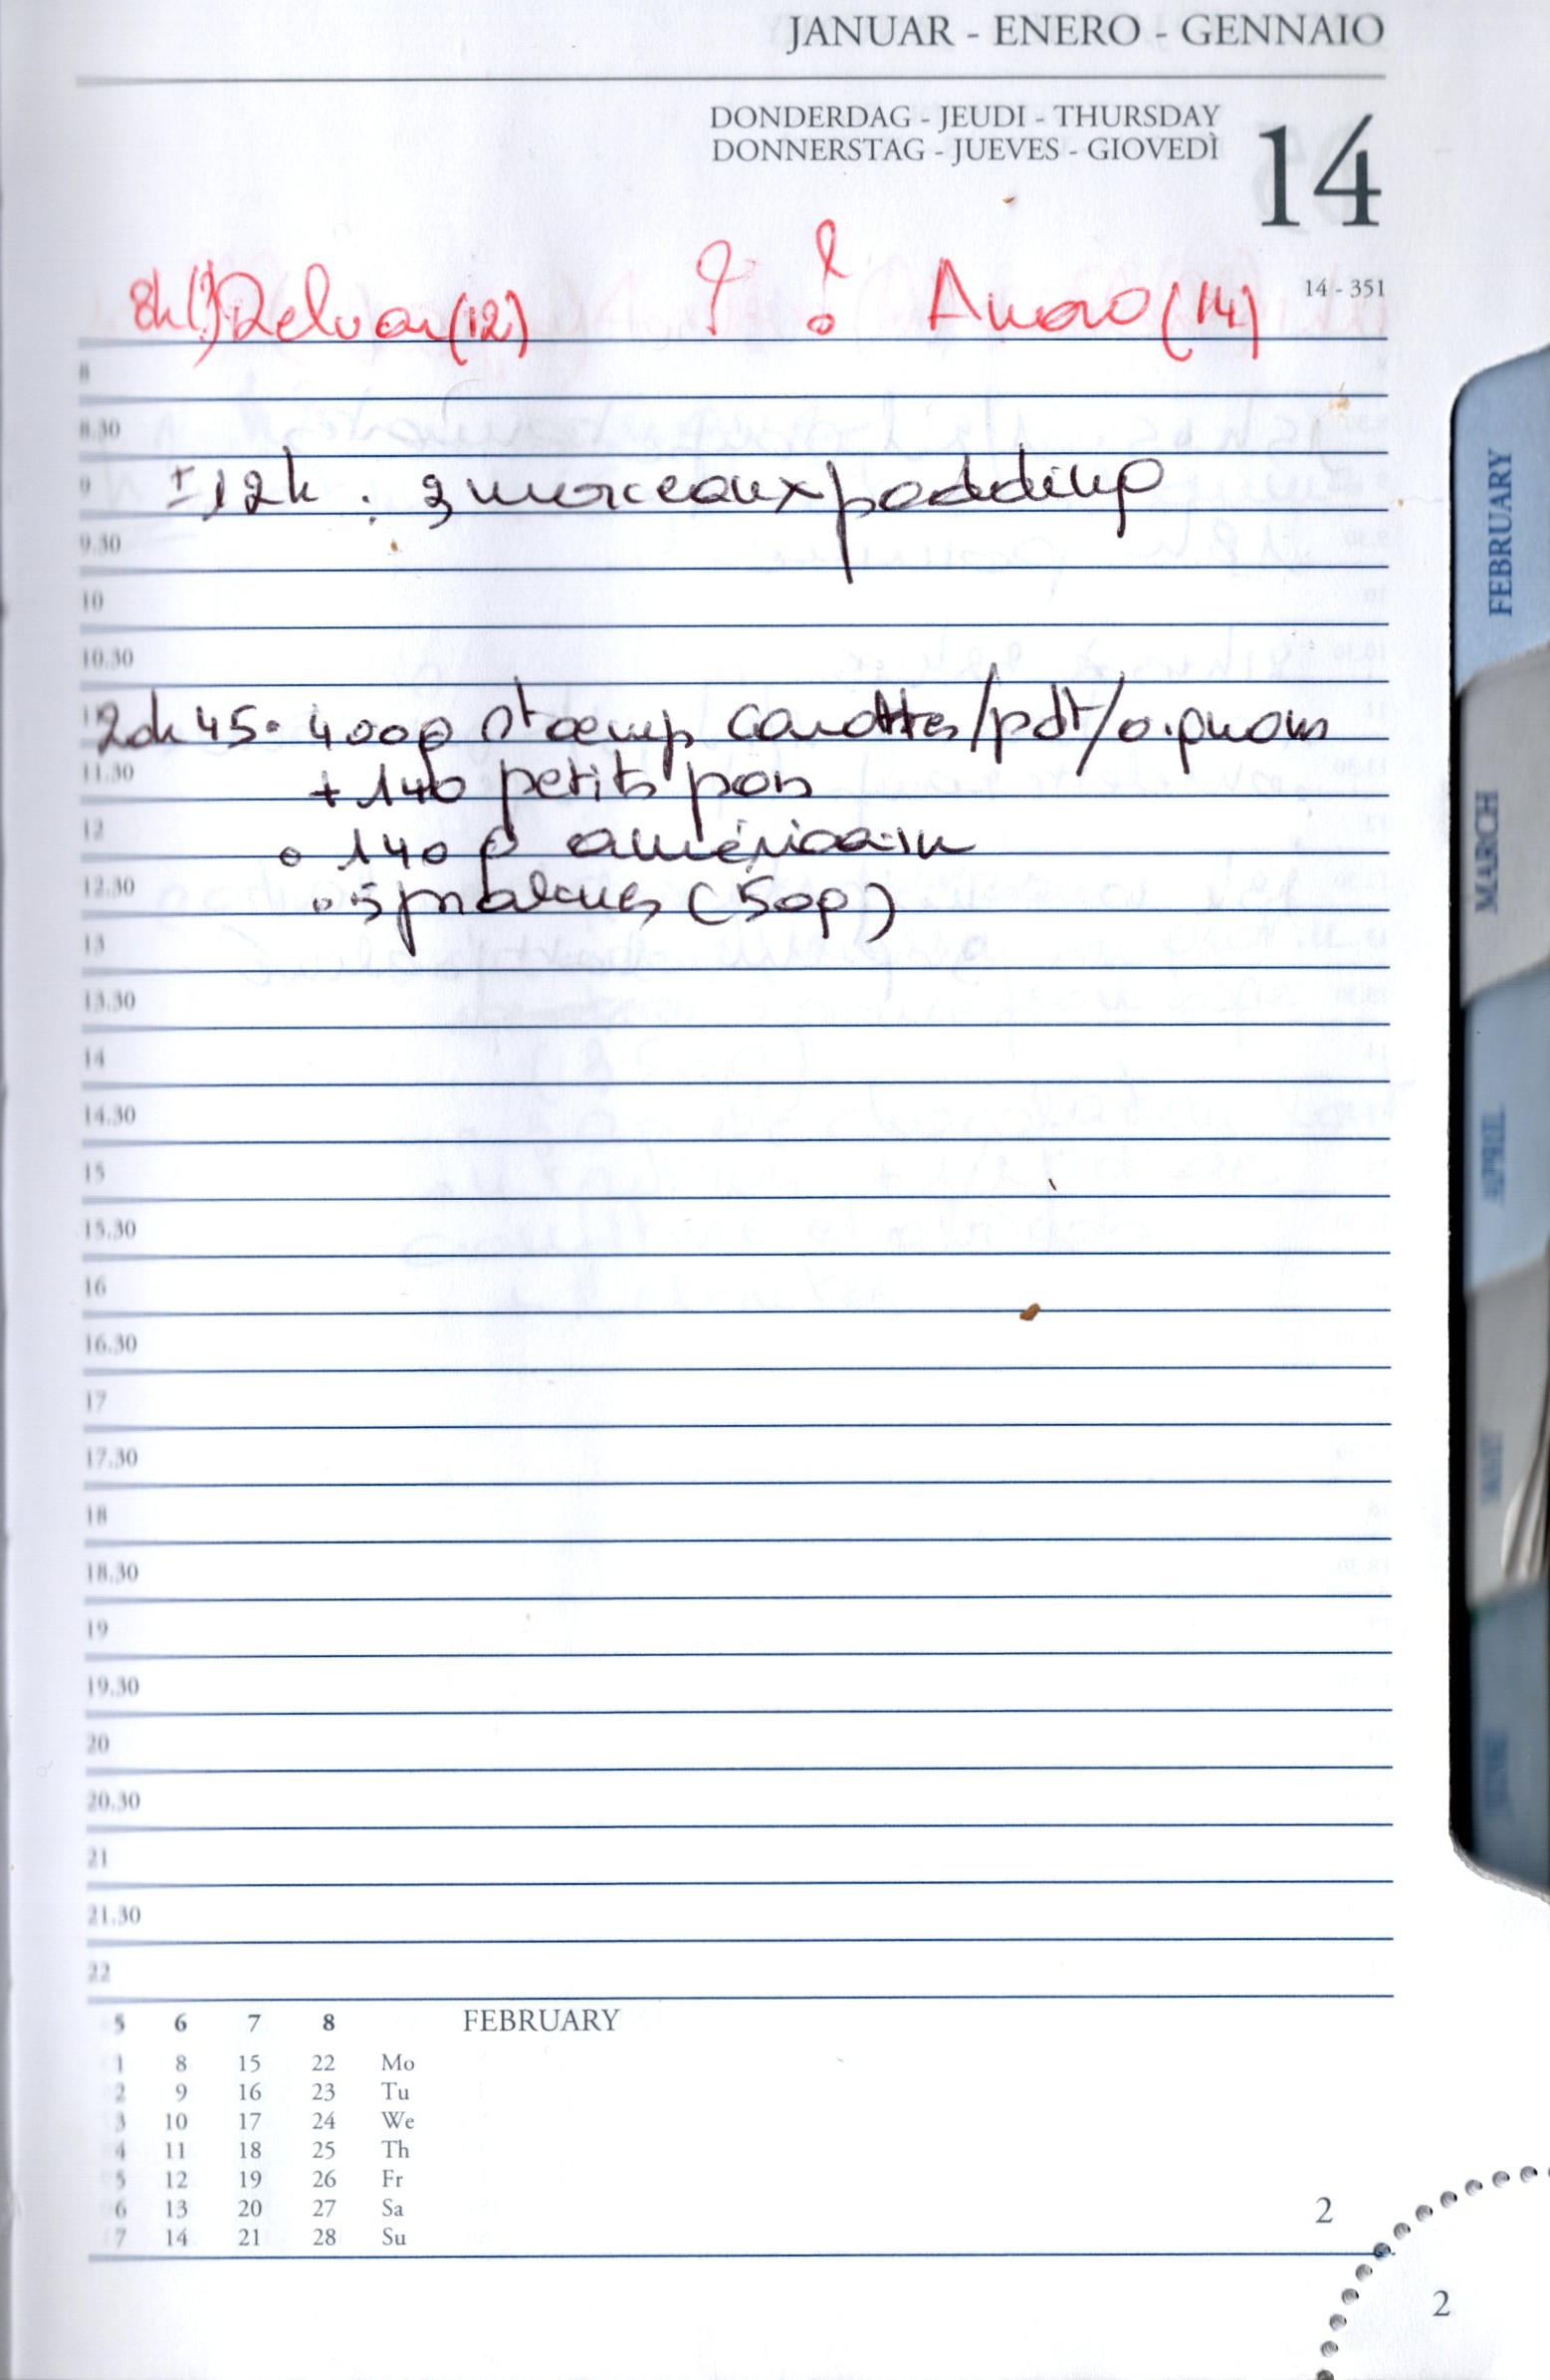 JANUAR - ENERO - GENNAIO
DONDERDAG - JEUDI - THURSDAY
DONNERSTAG - JUEVES - GIOVEDÌ
14
14 - 351
8h(?) Delvau (12) ? ? (14)
8
8.30
9 ± 12h : 3 morceaux pudding
9.30
10
10.30
20h45: 400g stoemp carottes/pdt/oignons
11.30 + 140 petits pois
12 • 140 g américain
12.30 • 5 pralines (50g)
13
13.30
14
14.30
15
15.30
16
16.30
17
17.30
18
18.30
19
19.30
20
20.30
21
21.30
22
5 6 7 8 FEBRUARY
1 8 15 22 Mo
2 9 16 23 Tu
3 10 17 24 We
4 11 18 25 Th
5 12 19 26 Fr
6 13 20 27 Sa
7 14 21 28 Su
2
2
FEBRUARY
MARCH
APRIL
MAY
JUNE